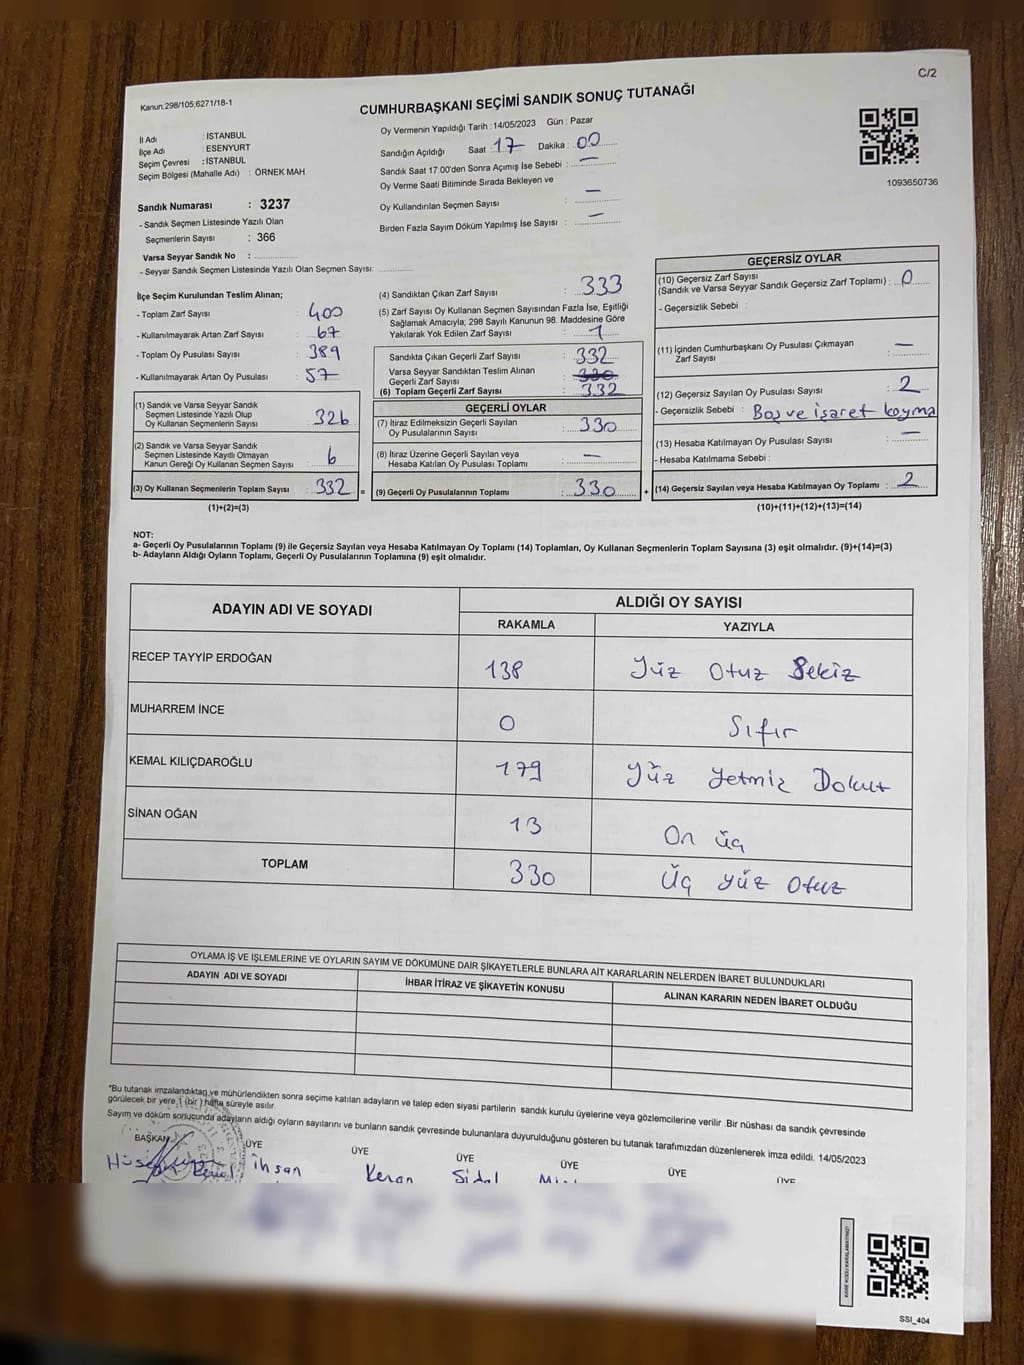 C/2
Kanun:298/105;6271/18-1
CUMHURBAŞKANI SEÇİMİ SANDIK SONUÇ TUTANAĞI
İl Adı : İSTANBUL
İlçe Adı : ESENYURT
Seçim Çevresi : İSTANBUL
Seçim Bölgesi (Mahalle Adı) : ÖRNEK MAH.
Oy Vermenin Yapıldığı Tarih : 14/05/2023 Gün : Pazar
Sandığın Açıldığı Saat : 17 Dakika : 00
Sandık Saat 17:00'den Sonra Açımış İse Sebebi : —
Oy Verme Saati Bitiminde Sırada Bekleyen ve
Oy Kullandırılan Seçmen Sayısı : —
Birden Fazla Sayım Döküm Yapılmış İse Sayısı : —
1093650736
Sandık Numarası : 3237
- Sandık Seçmen Listesinde Yazılı Olan
Seçmenlerin Sayısı : 366
Varsa Seyyar Sandık No :
- Seyyar Sandık Seçmen Listesinde Yazılı Olan Seçmen Sayısı:
İlçe Seçim Kurulundan Teslim Alınan;
- Toplam Zarf Sayısı : 400
- Kullanılmayarak Artan Zarf Sayısı : 67
- Toplam Oy Pusulası Sayısı : 389
- Kullanılmayarak Artan Oy Pusulası : 57
(1) Sandık ve Varsa Seyyar Sandık
Seçmen Listesinde Yazılı Olup
Oy Kullanan Seçmenlerin Sayısı : 326
(2) Sandık ve Varsa Seyyar Sandık
Seçmen Listesinde Kayıtlı Olmayan
Kanun Gereği Oy Kullanan Seçmen Sayısı : 6
(3) Oy Kullanan Seçmenlerin Toplam Sayısı : 332 =
(1)+(2)=(3)
(4) Sandıktan Çıkan Zarf Sayısı : 333
(5) Zarf Sayısı Oy Kullanan Seçmen Sayısından Fazla İse, Eşitliği
Sağlamak Amacıyla; 298 Sayılı Kanunun 98. Maddesine Göre
Yakılarak Yok Edilen Zarf Sayısı : 1
Sandıkta Çıkan Geçerli Zarf Sayısı : 332
Varsa Seyyar Sandıktan Teslim Alınan
Geçerli Zarf Sayısı : 330
(6) Toplam Geçerli Zarf Sayısı : 332
GEÇERLİ OYLAR
(7) İtiraz Edilmeksizin Geçerli Sayılan
Oy Pusulalarının Sayısı : 330
(8) İtiraz Üzerine Geçerli Sayılan veya
Hesaba Katılan Oy Pusulası Toplamı : —
(9) Geçerli Oy Pusulalarının Toplamı : 330 +
GEÇERSİZ OYLAR
(10) Geçersiz Zarf Sayısı
(Sandık ve Varsa Seyyar Sandık Geçersiz Zarf Toplamı) : 0
- Geçersizlik Sebebi :
(11) İçinden Cumhurbaşkanı Oy Pusulası Çıkmayan
Zarf Sayısı : —
(12) Geçersiz Sayılan Oy Pusulası Sayısı : 2
- Geçersizlik Sebebi : Boş ve işaret koyma
(13) Hesaba Katılmayan Oy Pusulası Sayısı : —
- Hesaba Katılmama Sebebi :
(14) Geçersiz Sayılan veya Hesaba Katılmayan Oy Toplamı : 2
(10)+(11)+(12)+(13)=(14)
NOT:
a- Geçerli Oy Pusulalarının Toplamı (9) ile Geçersiz Sayılan veya Hesaba Katılmayan Oy Toplamı (14) Toplamları, Oy Kullanan Seçmenlerin Toplam Sayısına (3) eşit olmalıdır. (9)+(14)=(3)
b- Adayların Aldığı Oyların Toplamı, Geçerli Oy Pusulalarının Toplamına (9) eşit olmalıdır.
ADAYIN ADI VE SOYADI ALDIĞI OY SAYISI
RAKAMLA YAZIYLA
RECEP TAYYİP ERDOĞAN 138 Yüz Otuz Sekiz
MUHARREM İNCE 0 Sıfır
KEMAL KILIÇDAROĞLU 179 Yüz Yetmiz Dokut
SİNAN OĞAN 13 On üç
TOPLAM 330 Üç yüz Otuz
OYLAMA İŞ VE İŞLEMLERİNE VE OYLARIN SAYIM VE DÖKÜMÜNE DAİR ŞİKAYETLERLE BUNLARA AİT KARARLARIN NELERDEN İBARET BULUNDUKLARI
ADAYIN ADI VE SOYADI İHBAR İTİRAZ VE ŞİKAYETİN KONUSU ALINAN KARARIN NEDEN İBARET OLDUĞU
*Bu tutanak imzalandıktan ve mühürlendikten sonra seçime katılan adayların ve talep eden siyasi partilerin sandık kurulu üyelerine veya gözlemcilerine verilir. Bir nüshası da sandık çevresinde
görülecek bir yere 1 (bir) hafta süreyle asılır.
Sayım ve döküm sonucunda adayların aldığı oyların sayılarını ve bunların sandık çevresinde bulunanlara duyurulduğunu gösteren bu tutanak tarafımızdan düzenlenerek imza edildi. 14/05/2023
BAŞKAN ÜYE ÜYE ÜYE ÜYE ÜYE ÜYE
ihsan Kenan
SSI_404